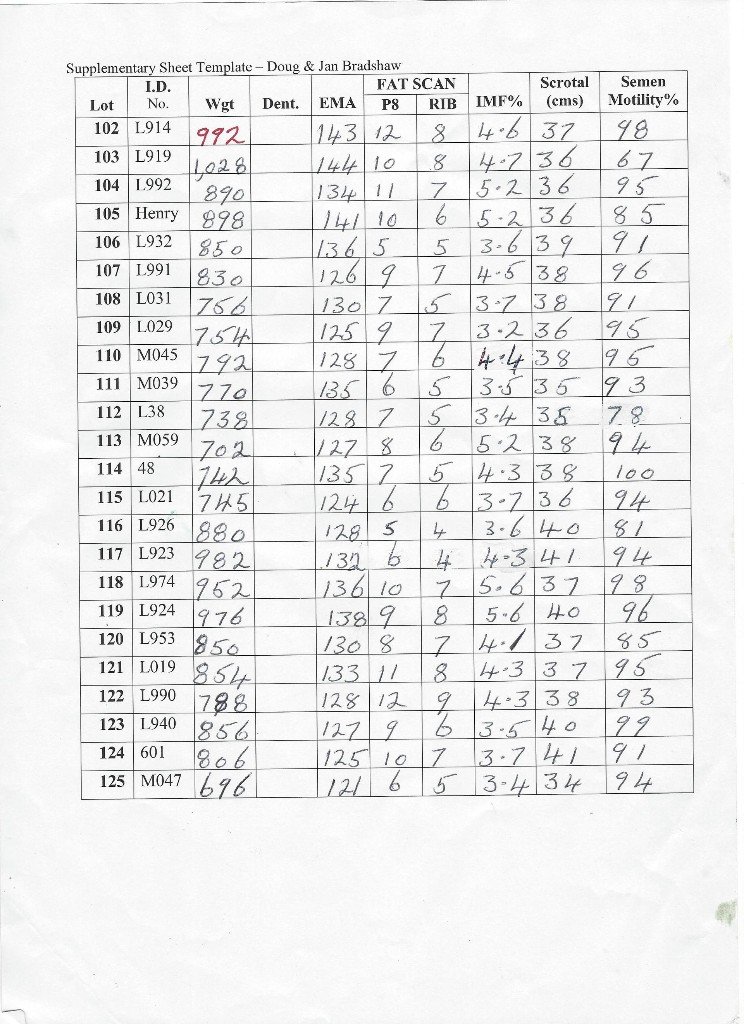 Supplementary Sheet Template – Doug & Jan Bradshaw
Lot I.D. No. Wgt Dent. EMA FAT SCAN P8 RIB IMF% Scrotal (cms) Semen Motility%
102 L914 992 143 12 8 4.6 37 98
103 L919 1,028 144 10 8 4.7 36 67
104 L992 890 134 11 7 5.2 36 95
105 Henry 898 141 10 6 5.2 36 85
106 L932 850 136 5 5 3.6 39 91
107 L991 830 126 9 7 4.5 38 96
108 L031 756 130 7 5 3.7 38 91
109 L029 754 125 9 7 3.2 36 95
110 M045 792 128 7 6 4.4 38 96
111 M039 770 135 6 5 3.5 35 93
112 L38 738 128 7 5 3.4 35 78
113 M059 702 127 8 6 5.2 38 94
114 48 742 135 7 5 4.3 38 100
115 L021 745 124 6 6 3.7 36 94
116 L926 880 128 5 4 3.6 40 81
117 L923 982 132 6 4 4.3 41 94
118 L974 952 136 10 7 5.6 37 98
119 L924 976 138 9 8 5.6 40 96
120 L953 850 130 8 7 4.1 37 85
121 L019 854 133 11 8 4.3 37 95
122 L990 788 128 12 9 4.3 38 93
123 L940 856 127 9 6 3.5 40 99
124 601 806 125 10 7 3.7 41 91
125 M047 696 121 6 5 3.4 34 94